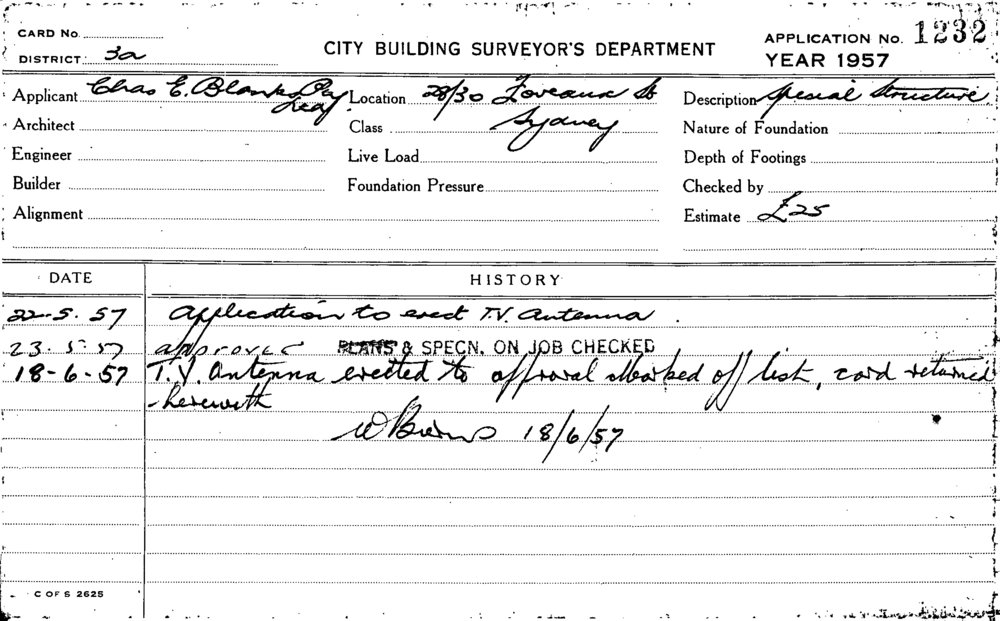 CARD No.
CITY BUILDING SURVEYOR'S DEPARTMENT
APPLICATION No. 1232
DISTRICT: 3a
YEAR 1957
Applicant Chas E. Blanks Pty
Location 28/30 Foveaux St
Sydney
Description Special Structure
Architect
Class
Nature of Foundation
Engineer
Live Load
Depth of Footings
Builder
Foundation Pressure
Checked by
Alignment
Estimate £25
DATE
HISTORY
22-5-57 Application to erect T.V. Antenna.
23.5.57 approved PLANS & SPECN. ON JOB CHECKED
18-6-57 T.V. Antenna erected to approval Marked off list, card returned
herewith
18/6/57
C OF S 2625